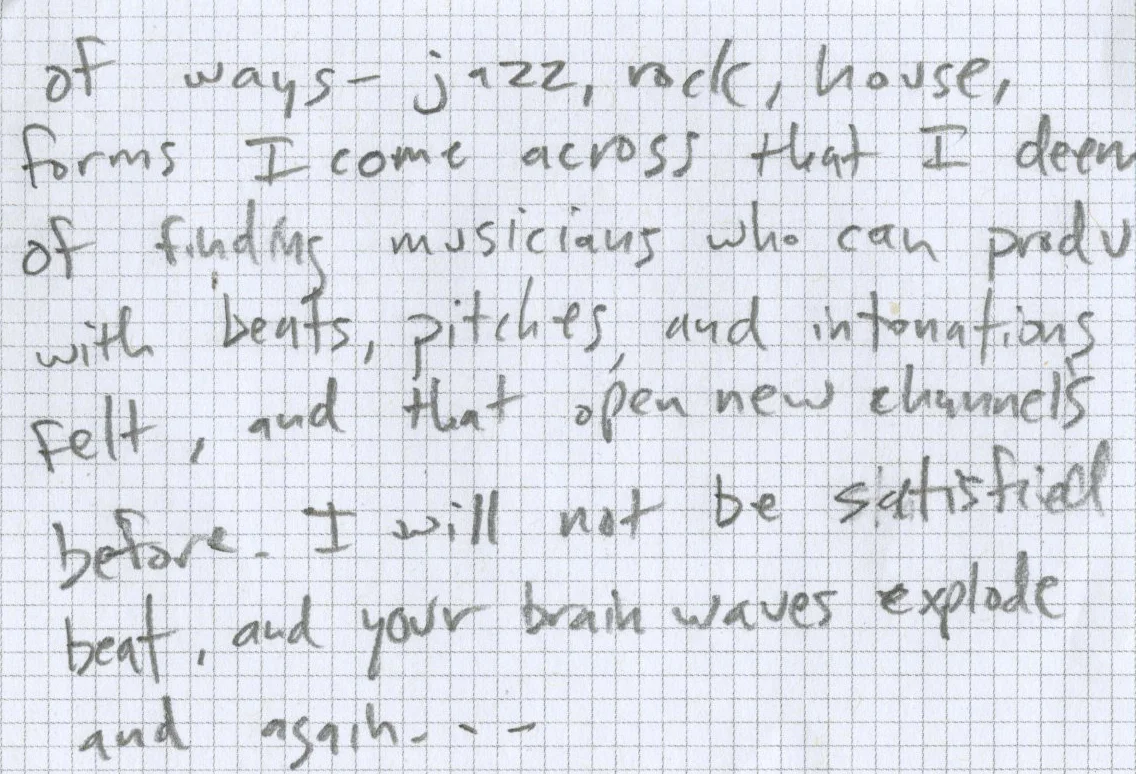 of ways- jazz, rock, house,
forms I come across that I deem
of finding musicians who can produ
with beats, pitches, and intonations
felt, and that open new channels
before. I will not be satisfied
beat, and your brain waves explode
and again...